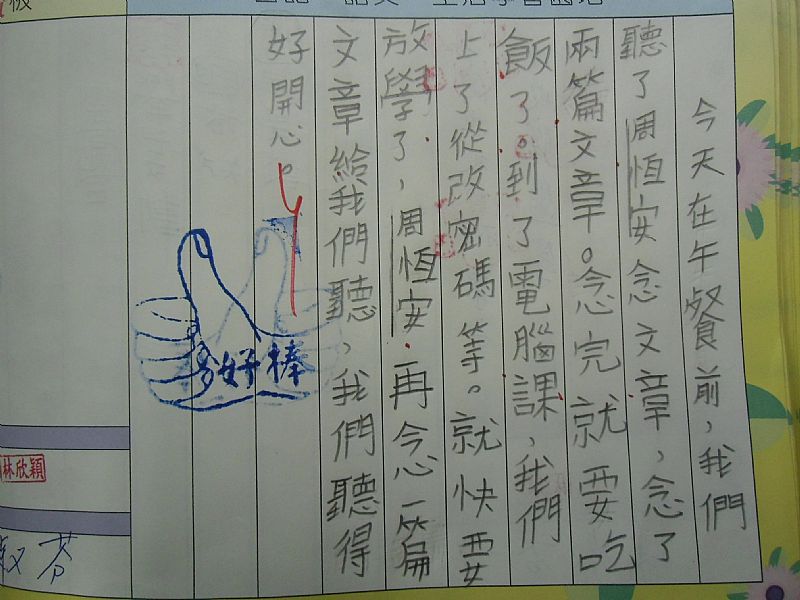 今天在午餐前，我們
聽了周恆安念文章，念了
兩篇文章。念完就要吃
飯了。到了電腦課，我們
上了從改密碼等。就快要
放學了，周恆安再念一篇
文章給我們聽，我們聽得
好開心。
好棒
林欣穎
芬